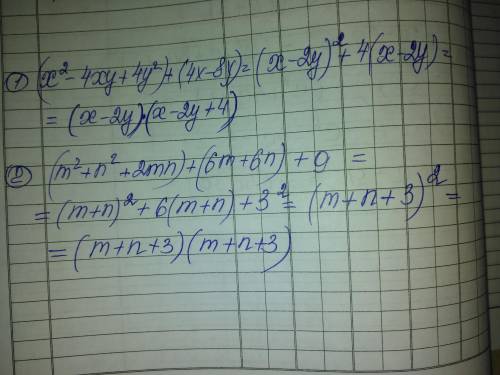 ① (x² - 4xy + 4y²) + (4x - 8y) = (x - 2y)² + 4(x - 2y) =
= (x - 2y)·(x - 2y + 4)
② (m² + n² + 2mn) + (6m + 6n) + 9 =
= (m + n)² + 6(m + n) + 3² = (m + n + 3)² =
= (m + n + 3)(m + n + 3)